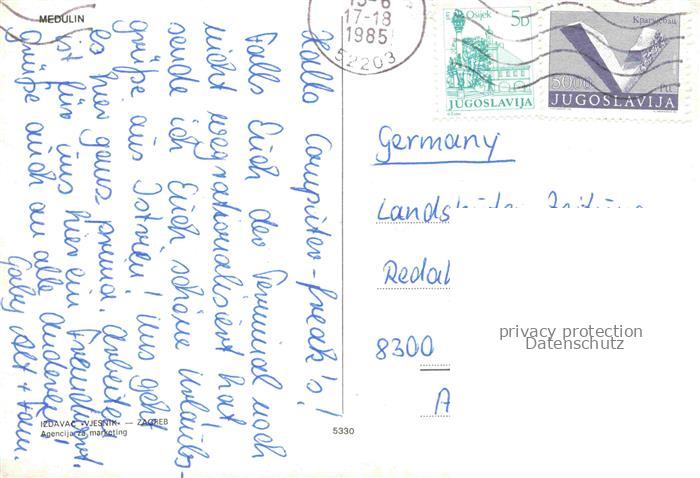 MEDULIN
Hallo Computer-freak's!
Falls Euch der Terminal noch
nicht wegrationalisiert hat
sende ich Euch schöne Urlaubs-
grüße aus Istrien! Uns geht
es hier ganz prima. Arbeiten
ist für uns hier ein Fremdwort.
Grüße auch an alle anderen
Gaby Alt + Fam.
IZDAVAČ «VJESNIK» — ZAGREB
Agencija za marketing
5330
17-18
1985
52203
Osijek 5D
JUGOSLAVIJA
Крагујевац
JUGOSLAVIJA
Germany
Lands
Redal
8300
privacy protection
Datenschutz